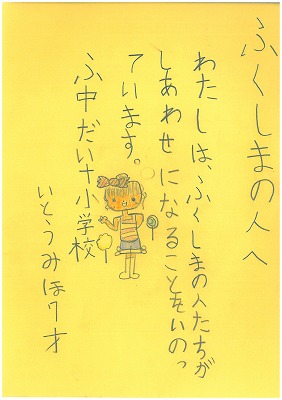 ふくしまの人へ
わたしは、ふくしまの人たちが
しあわせになることをいのっ
ています。
ふ中だい十小学校
いとうみほ7才